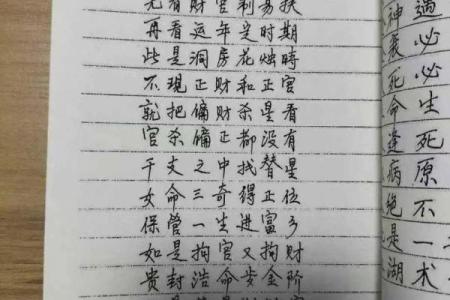 先看财官利易扶
再看运年定时期
此是洞房花烛时
不现正财和正官
就把偏财杀星看
官杀偏正都没有
干支之中找替星
女命三奇得正位
保管一生进富乡
如是拘官又拘财
贵封浩命步金阶
神
煞
死
命
逢
病
绝
是
湖
過
必
必
生
死
原
不
一
术